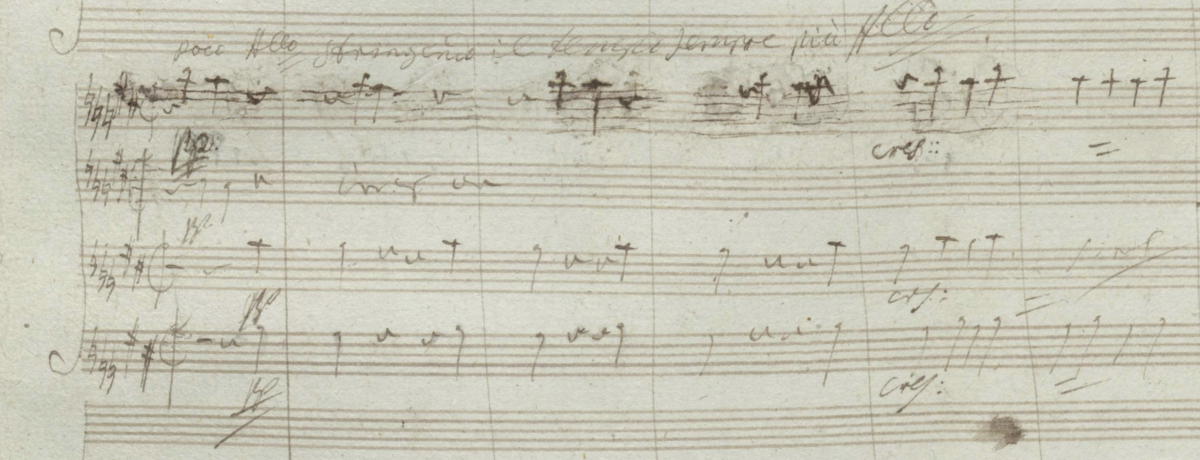 poco Allo stringendo il tempo sempre più Allo
pp
cres:
=
pp
pp
cres:
=
pp
cres:
=